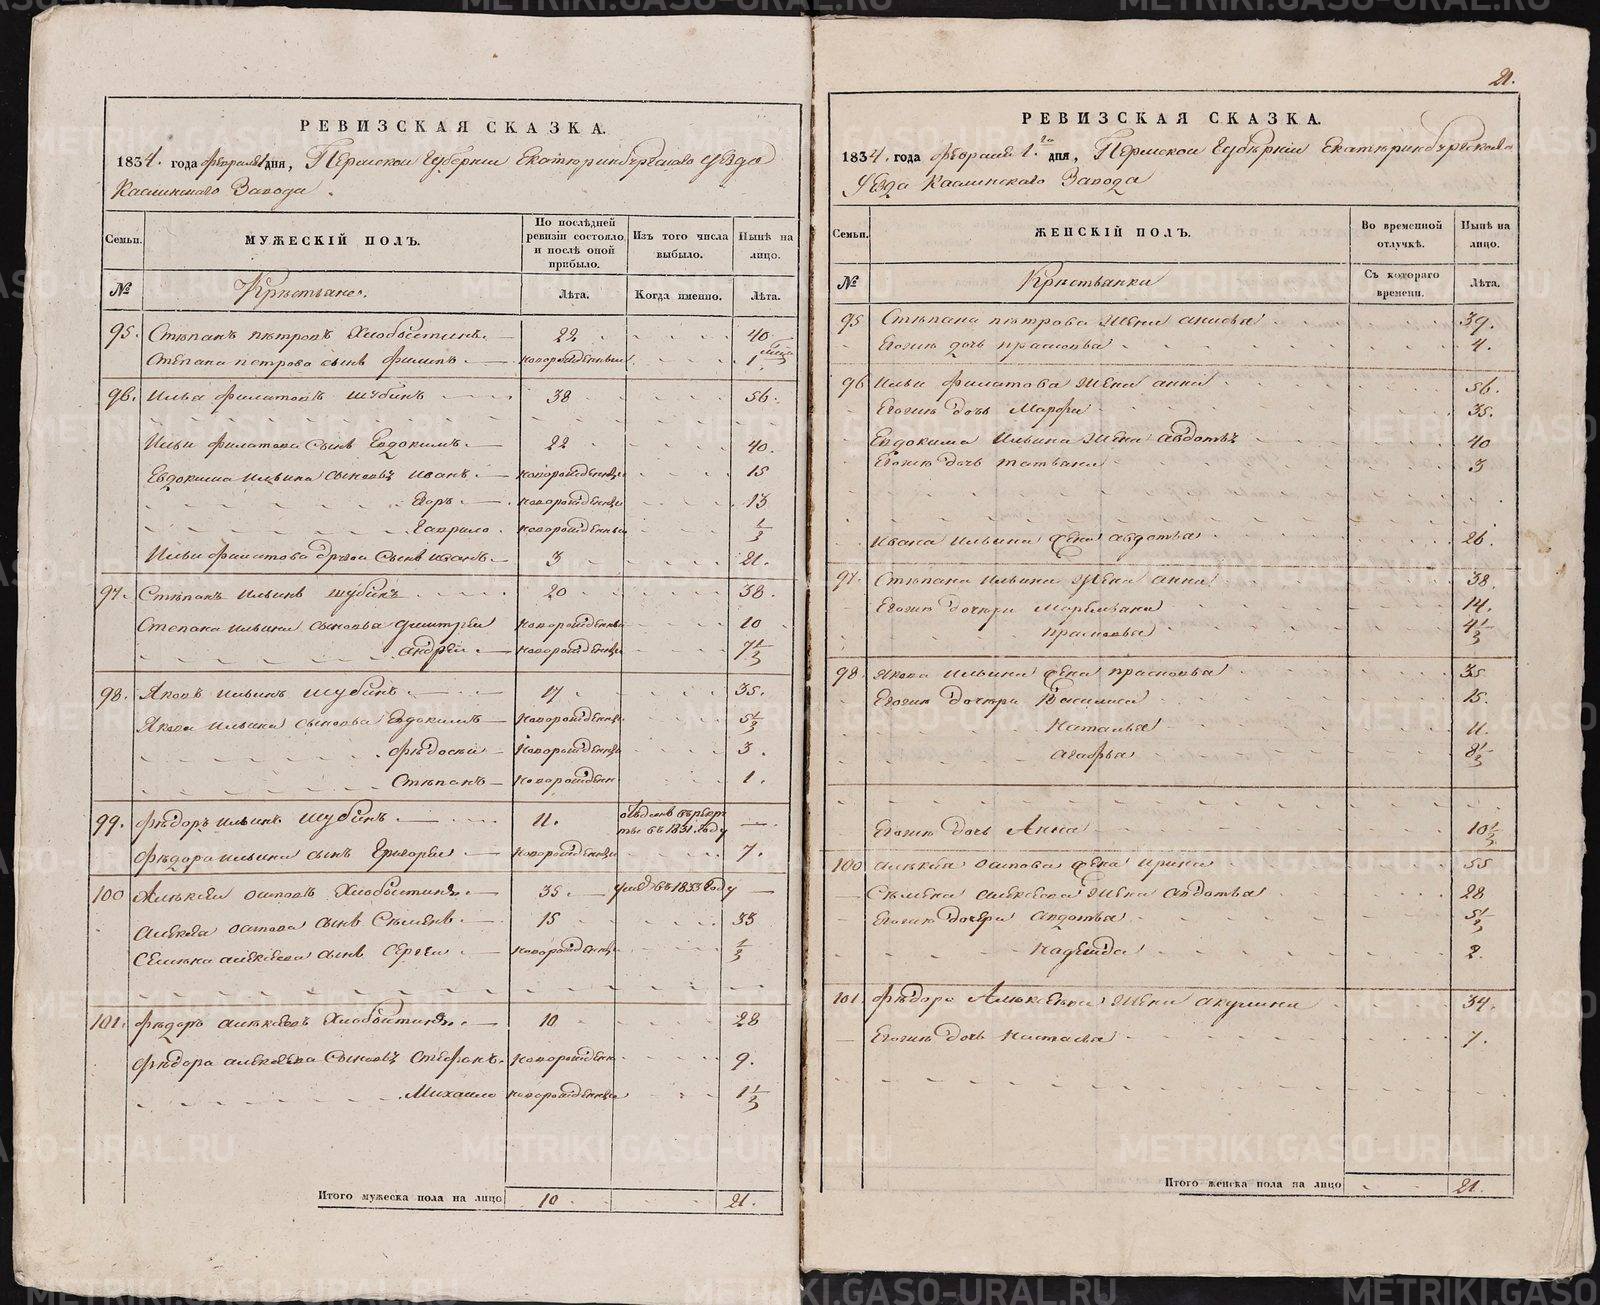 РЕВИЗСКАЯ СКАЗКА.
1834. года февраля 1 дня, Пермской Губернии Екатеринбургскаго уезда
Каслинского Завода.
Семьи.
МУЖЕСКІЙ ПОЛЪ.
По послѣдней ревизіи состояло и послѣ оной прибыло.
Изъ того числа выбыло.
Нынѣ на лицо.
№
Крестьяне.
Лѣта.
Когда именно.
Лѣта.
95. Степанъ петровъ Хлобыстинъ. 22 40
Степана петрова сынъ Филипъ новорожденный 1
96. Илья филатовъ шубинъ 38 56.
Ильи филатова сынъ Евдокимъ. 22 40.
Евдокима ильина сыновья иванъ новорожденны 15
Егоръ новорожденны 13
Гаврило новорожденны 1/2
Ильи филатова другой сынъ иванъ 3 21.
97. Степанъ ильинъ шубинъ 20 38.
Степана ильина сыновья дмитрей новорожденны 10
андрей новорожденны 7 1/2
98. Яковъ ильинъ шубинъ 17 35.
Якова ильина сыновья Евдокимъ новорожденны 5 1/2
федосей новорожденны 3.
Степанъ новорожден 1.
99. федоръ ильинъ шубинъ 11. отданъ въ рекруты въ 1831. году —
федора ильина сынъ Григорей новорожденны 7.
100 Алексей осиповъ Хлобыстинъ 35 умре въ 1833 году —
алексея осипова сынъ Семенъ 15 33
Семена алексеева сынъ Сергей новорожденны 1/2
101. федоръ алексеевъ Хлобыстинъ 10 28
федора алексеева сыновья Стефанъ новорожден 9.
Михаило новорожденны 1 1/2
Итого мужеска пола на лицо 10 21.
21.
РЕВИЗСКАЯ СКАЗКА.
1834. года февраля 1.го дня, Пермской Губерніи Екатеринбургскаго
Уезда Каслинскаго Завода
Семьи.
ЖЕНСКІЙ ПОЛЪ.
Во временной отлучкѣ.
Нынѣ на лицо.
№
Крестьянки
Съ котораго времени.
Лѣта.
95 Степана петрова жена анисья 39.
Егоже дочь прасковья 4.
96 Ильи филатова жена анна 56.
Егоже дочь Марфа 35.
Евдокима ильина жена авдотья 40
Егоже дочь татьяна 3
Ивана ильина жена авдотья 26.
97. Степана ильина жена анна 38.
Егоже дочери Марья 14.
прасковья 4 1/2
98. Якова ильина жена прасковья 35
Егоже дочери Василиса 15.
Наталья 11.
агафья 8 1/2
Егоже дочь Анна 10 1/2
100 алексея осипова жена ирина 55
Семена алексеева жена авдотья 28
Егоже дочери авдотья 5 1/2
Надежда 2.
101. федора Алексеева жена акулина 34.
Егоже дочь Наталья 7.
Итого женска пола на лицо 21.
METRIKI.GASO-URAL.RU